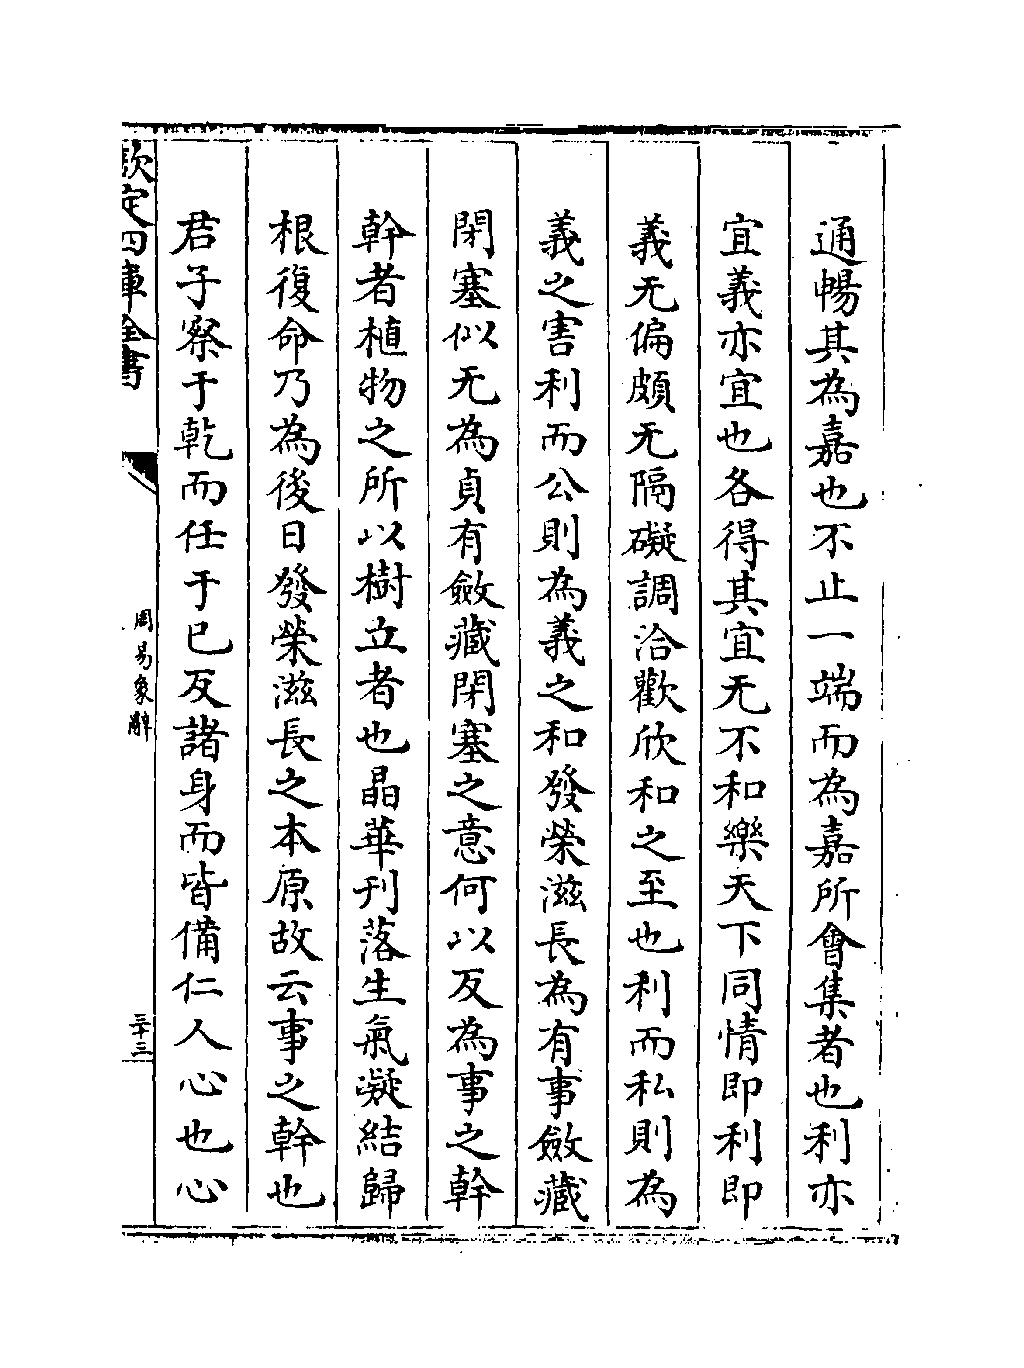 通暢其為嘉也不止一端而為嘉所會集者也利亦
宜義亦宜也各得其宜无不和樂天下同情即利即
義无偏頗无隔礙調洽歡欣和之至也利而私則為
義之害利而公則為義之和發榮滋長為有事斂藏
閉塞似无為貞有斂藏閉塞之意何以反為事之幹
幹者植物之所以樹立者也晶華刋落生氣凝結歸
根復命乃為後日發榮滋長之本原故云事之幹也
君子察于乾而任于已反諸身而皆備仁人心也心
欽定四庫全書
周易象辭
三十三